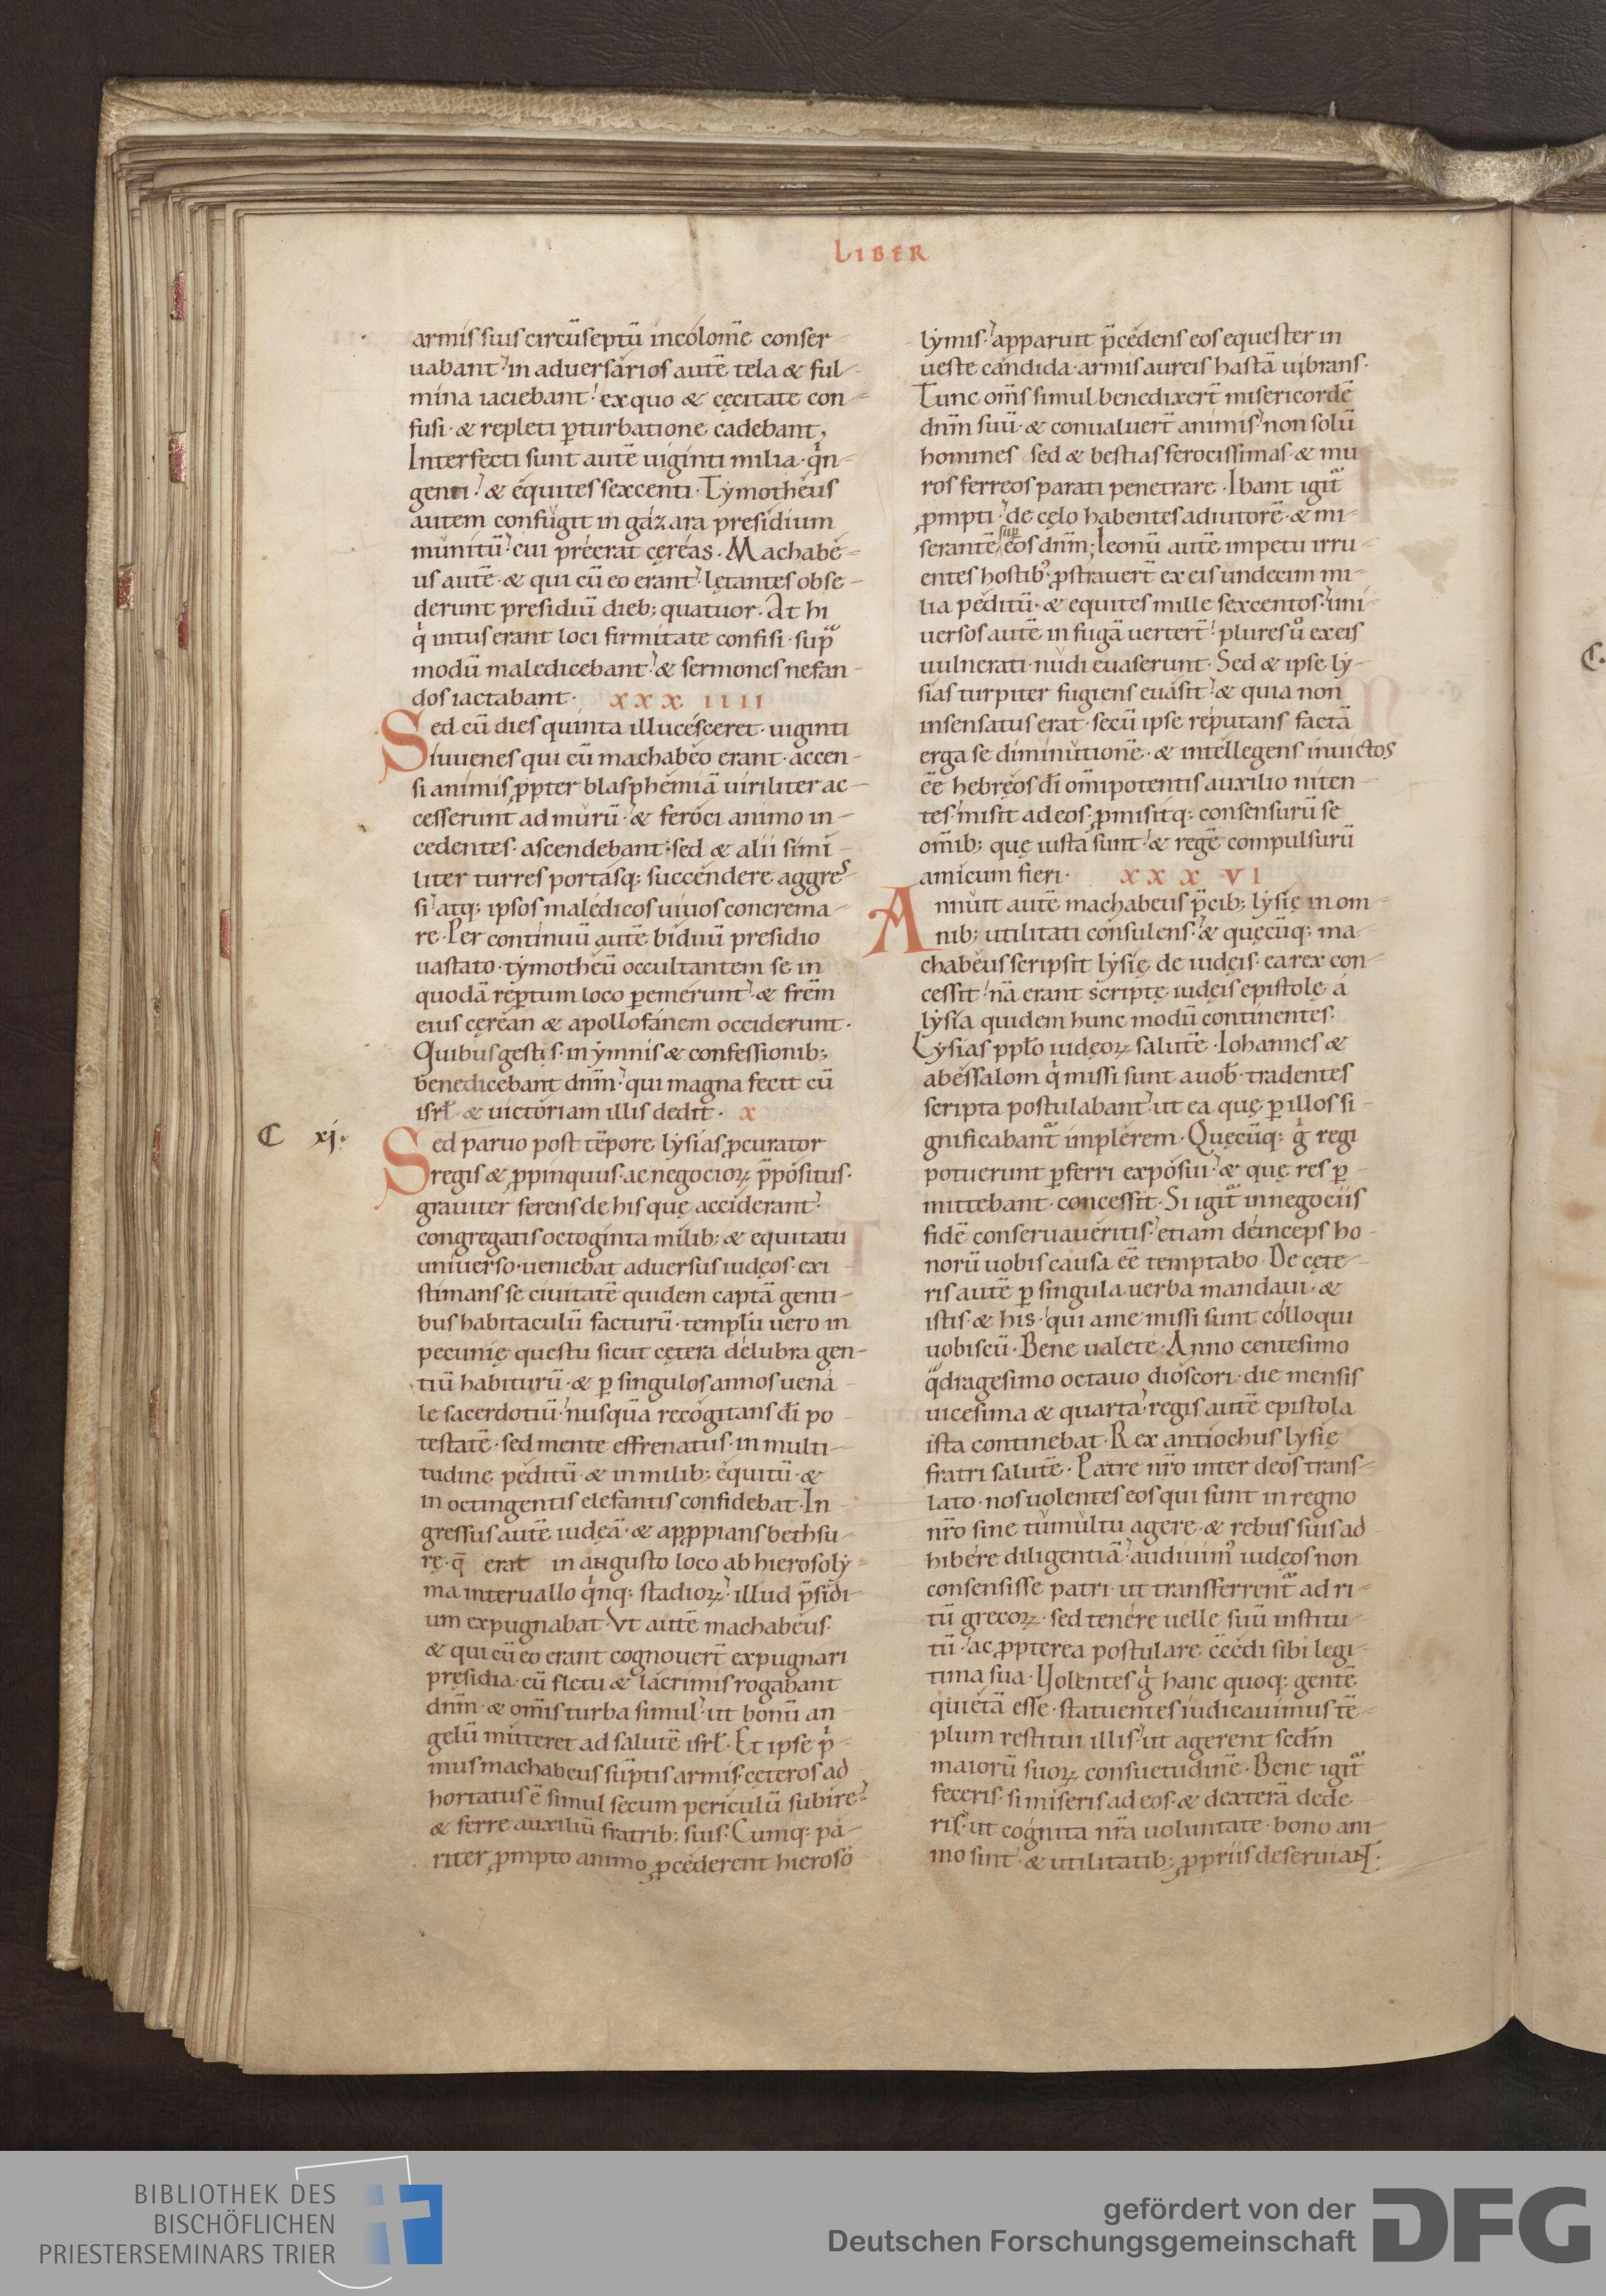 LIBER
armis suis circūseptū incolomē conser-
uabant. in aduersarios autē tela & ful-
mina iaciebant. ex quo & cęcitate con-
fusi. & repleti ꝑturbatione cadebant,
Interfecti sunt autē uiginti milia. qͥn-
genti. & equites sexcenti. Tẏmotheus
autem confugit in gazara presidium
munitū. cui preerat cęreas. Machabe-
us autē. & qui cū eo erant. lętantes obse-
derunt presidiū dieb; quatuor. At hi
qͥ intus erant loci firmitate confisi. supᷓ
modū maledicebant. & sermones nefan-
dos iactabant. XXXIIII
Sed cū dies quinta illucesceret. uiginti
iuuenes qui cū machabeo erant. accen-
si animis ꝓpter blasphemiā uiriliter ac-
cesserunt ad murū. & feroci animo in-
cedentes. ascendebant. sed & alii simi-
liter turres portasq; succendere aggres-
si. atq; ipsos maledicos uiuos concrema-
re. Per continuū autē biduū presidio
uastato. tẏmotheū occultantem se in
quodā reꝑtum loco ꝑemerunt. & frēm
eius cęrean & apollofanem occiderunt.
Quibus gestis. in ẏmnis & confessionib;
benedicebant dnm̄. qui magna fecit cū
isrł. & uictoriam illis dedit. X
C xj.
Sed paruo post tēpore lẏsias ꝓcurator
regis & ꝓpinquus. ac negocioꝝ p̄positus.
grauiter ferens de his quę acciderant.
congregatis octoginta milib; & equitatu
uniuerso. ueniebat aduersus iudęos. exi-
stimans se ciuitatē quidem captā genti-
bus habitaculū facturū. templū uero in
pecunię questu sicut cętera delubra gen-
tiū habiturū. & ꝑ singulos annos uena-
le sacerdotiū. nusquā recogitans dī po-
testatē. sed mente effrenatus. in multi-
tudine peditū. & in milib; equitū. &
in octingentis elefantis confidebat. In-
gressus autē iudęā. & apꝓpians bethsu-
rę. q̄ erat in angusto loco ab hierosolẏ-
ma interuallo qͥnq; stadioꝝ. illud p̄sidi-
um expugnabat. Vt autē machabeus.
& qui cū eo erant cognouert̄ expugnari
pręsidia. cū fletu & lacrimis rogabant
dnm̄. & om̄is turba simul. ut bonū an-
gelū mitteret ad salutē isrł. Et ipse pͥ-
mus machabeus sūptis armis. cęteros ad
hortatus ē simul secum periculū subire.
& ferre auxiliū fratrib; suis. Cumq; pa-
riter ꝓmpto animo ꝓcederent hieroso
lẏmis. apparuit p̄cedens eos equester in
ueste candida. armis aureis hastā uibrans.
Tunc om̄s simul benedixert̄ misericordē
dnm̄ suū. & conualuert̄ animis. non solū
homines sed & bestias ferocissimas. & mu-
ros ferreos parati penetrare. Ibant igit᷑
ꝓmpti. de cęlo habentes adiutorē. & mi-
serantē sup eos dnm̄; leonū autē impetu irru-
entes hostib;. ꝓstrauert̄ ex eis undecim mi-
lia peditū. & equites mille sexcentos. uni-
uersos autē in fugā uertert̄. plures uͦ ex eis
uulnerati. nudi euaserunt. Sed & ipse lẏ-
sias turpiter fugiens euasit. & quia non
insensatus erat. secū ipse reputans factā
erga se diminutionē. & intellegens inuictos
ēē hebręos dī om̄ipotentis auxilio niten-
tes. misit ad eos. ꝓmisitq; consensurū se
om̄ib; quę iusta sunt. & regē compulsurū
amicum fieri. XXXVI
Annuit autē machabeus p̄cib; lẏsię in om-
nib; utilitati consulens. & quęcūq; ma-
chabeus scripsit lẏsię de iudęis. ea rex con-
cessit. nā erant scriptę iudęis epistolę a
lẏsia quidem hunc modū continentes.
Lẏsias ppło iudęoꝝ salutē. Iohannes &
abessalom qͥ missi sunt a uob̄. tradentes
scripta postulabant. ut ea quę ꝑ illos si-
gnificabant᷑ implerem. Quęcūq; gͥ regi
potuerunt ꝑferri exposui. & quę res ꝑ-
mittebant. concessit. Si igit᷑ in negociis
fidē conseruaueritis. etiam deinceps bo-
norū uobis causa ēē temptabo. De cęte-
ris autē ꝑ singula uerba mandaui. &
istis. & his. qui a me missi sunt colloqui
uobiscū. Bene ualete. Anno centesimo
qᷓdragesimo octauo dioscori. die mensis
uicesima & quarta. regis autē epistola
ista continebat. Rex antiochus lysię
fratri salutē. Patre nr̄o inter deos trans-
lato. nos uolentes eos qui sunt in regno
nr̄o sine tumultu agere. & rebus suis ad
hibere diligentiā. audiuim᷒ iudęos non
consensisse patri. ut transferrent᷑ ad ri-
tū grecoꝝ. sed tenere uelle suū institu-
tū. ac ꝓpterea postulare c̄cedi sibi legi-
tima sua. Uolentes gͥ hanc quoq; gentē
quietā esse. statuentes iudicauimus tē-
plum restitui illis. ut agerent scdm̄
maiorū suoꝝ consuetudinē. Bene igit᷑
feceris. si miseris ad eos. & dexterā dede-
ris. ut cognita nr̄a uoluntate. bono ani-
mo sint. & utilitatib; ꝓpriis deseruiant.
C.
BIBLIOTHEK DES
BISCHÖFLICHEN
PRIESTERSEMINARS TRIER
gefördert von der
Deutschen Forschungsgemeinschaft
DFG